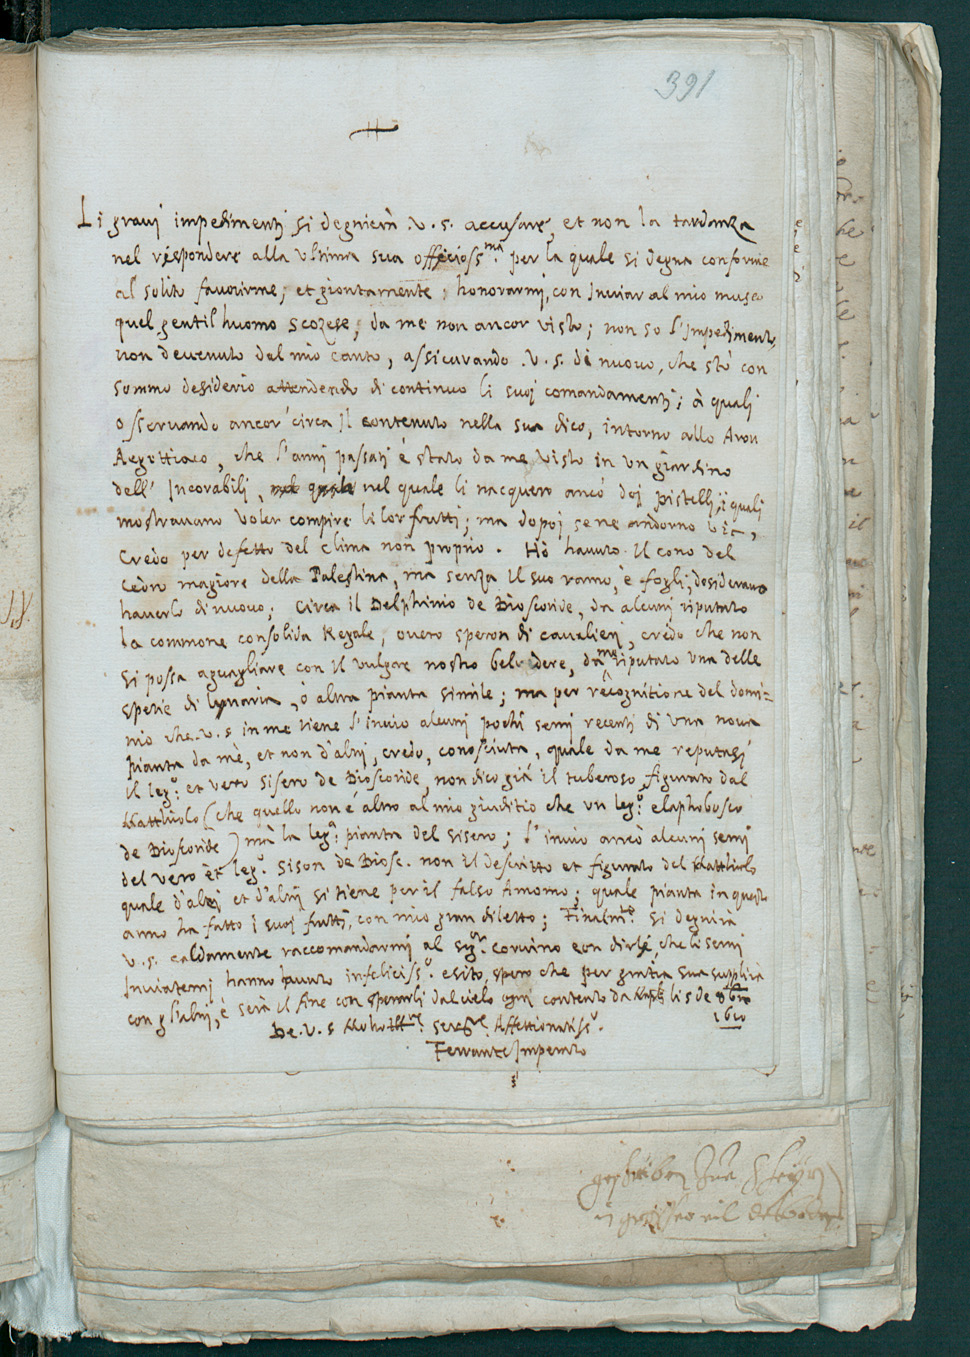 391
Li gravi impedimenti si degnierà v. s. accusare, et non la tardanza
nel respondere alla ultima sua officioss.ma per la quale si degna conforme
al solito favorirme, et giontamente honorarmi, con Inviar al mio museo
quel gentil'huomo scozese, da me non ancor visto; non so l'impedimento,
non devenuto dal mio canto, assicurando v. s. di nuovo, che stò con
sommo desiderio attendendo di continuo li suoj comandamenti; à qualj
osservando ancor' circa il contenuto nella sua dico, intorno allo Aron
Aegittiaco, che l'anni passati è stato da me visto in un giardino
dell' Incorabilj, nel quale li nacquero ancò doj pistellj, i qualj
mostravano voler compire li lor frutti; ma dopoj se ne andorno
Credo per defetto del clima non proprio. Hò havuto il cono del
Cedro magiore della Palestina, ma senza il suo ramo, è foglj, desiderava
haverlo di nuovo; Circa il Delphinio de Dioscoride, da alcunj riputato
la commone consolida Regale, overo speron di cavalierj, credo che non
si possa aguagliare con il vulgare nostro belvedere, da me riputato una delle
spetie di lynaria, ò altra pianta simile; ma per recognitione del domi-
nio che v. s in me tiene l'invio alcunj pochi semj recenti di una nova
pianta da mè, et non d'altrj, credo, conosciuta, quale da me reputasj
il leg.o et vero sisero de Dioscoride, non dico già il tuberoso figurato dal
Matthiolo (che quello non è altro al mio giuditio che un leg.o elaphobosco
de Dioscoride) mà la leg.a pianta del sisero; l'invio ancò alcunj semj
del vero et leg.o sison de Diosc. non il descritto et figurato del Matthiolo
quale d'alcj et d'altrj si tiene per il falso Amomo; quale pianta in questo
anno ha fatto i suoj frutti, con mio gran diletto; Finalm.te si degnirà
v. s. caldamente raccomandarmi al sig.r corvino con dirle, che li semi
Inviatemj hanno havuto infeliciss.o esito, spero che per gratia sua supplirà
con gl'altrj, è serà il fine con sperarlj dal cielo ogni contento da Naplj li 5 de 8bre
1610
De. v. s Molto Ill.re ser.re Affettionatiss.o
Ferrante Imperato